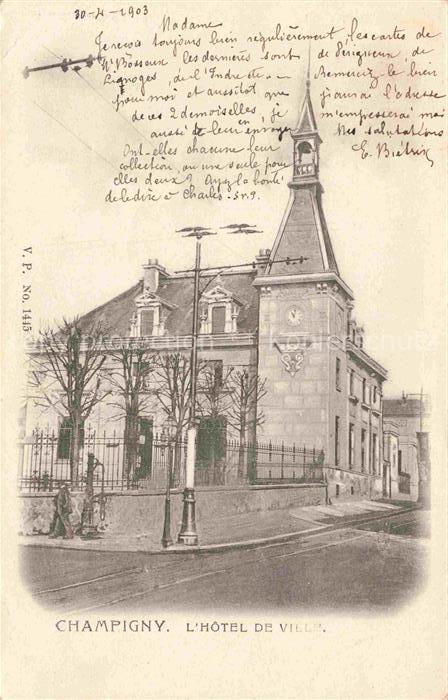 30-4-1903
Madame
Je reçois toujours bien régulièrement les cartes de
Mr Bosseux les dernières sont de Périgueux de
Limoges, de l'Indre etc. Remerciez le bien
pour moi et aussitot que j'aurai l'adresse
de ces 2 demoiselles, je m'empresserai moi
aussi de leur en envoyer Mes salutations
Ont-elles chacune leur E. Biétrix
collection, ou une seule pour
elles deux? Ayez la bonté
de le dire à Charles
V. P. No. 1445
CHAMPIGNY. L'HÔTEL DE VILLE.